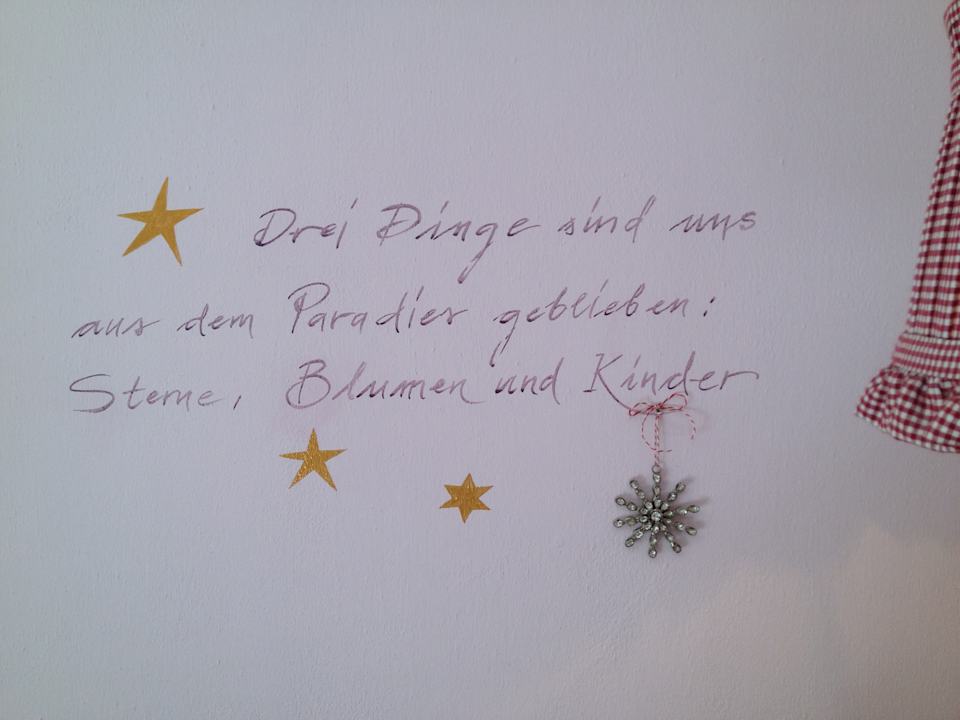 Drei Dinge sind uns
aus dem Paradies geblieben:
Sterne, Blumen und Kinder